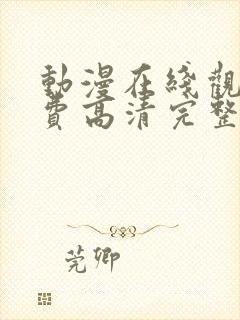 動漫在綫觀
費高清完整
莞卿